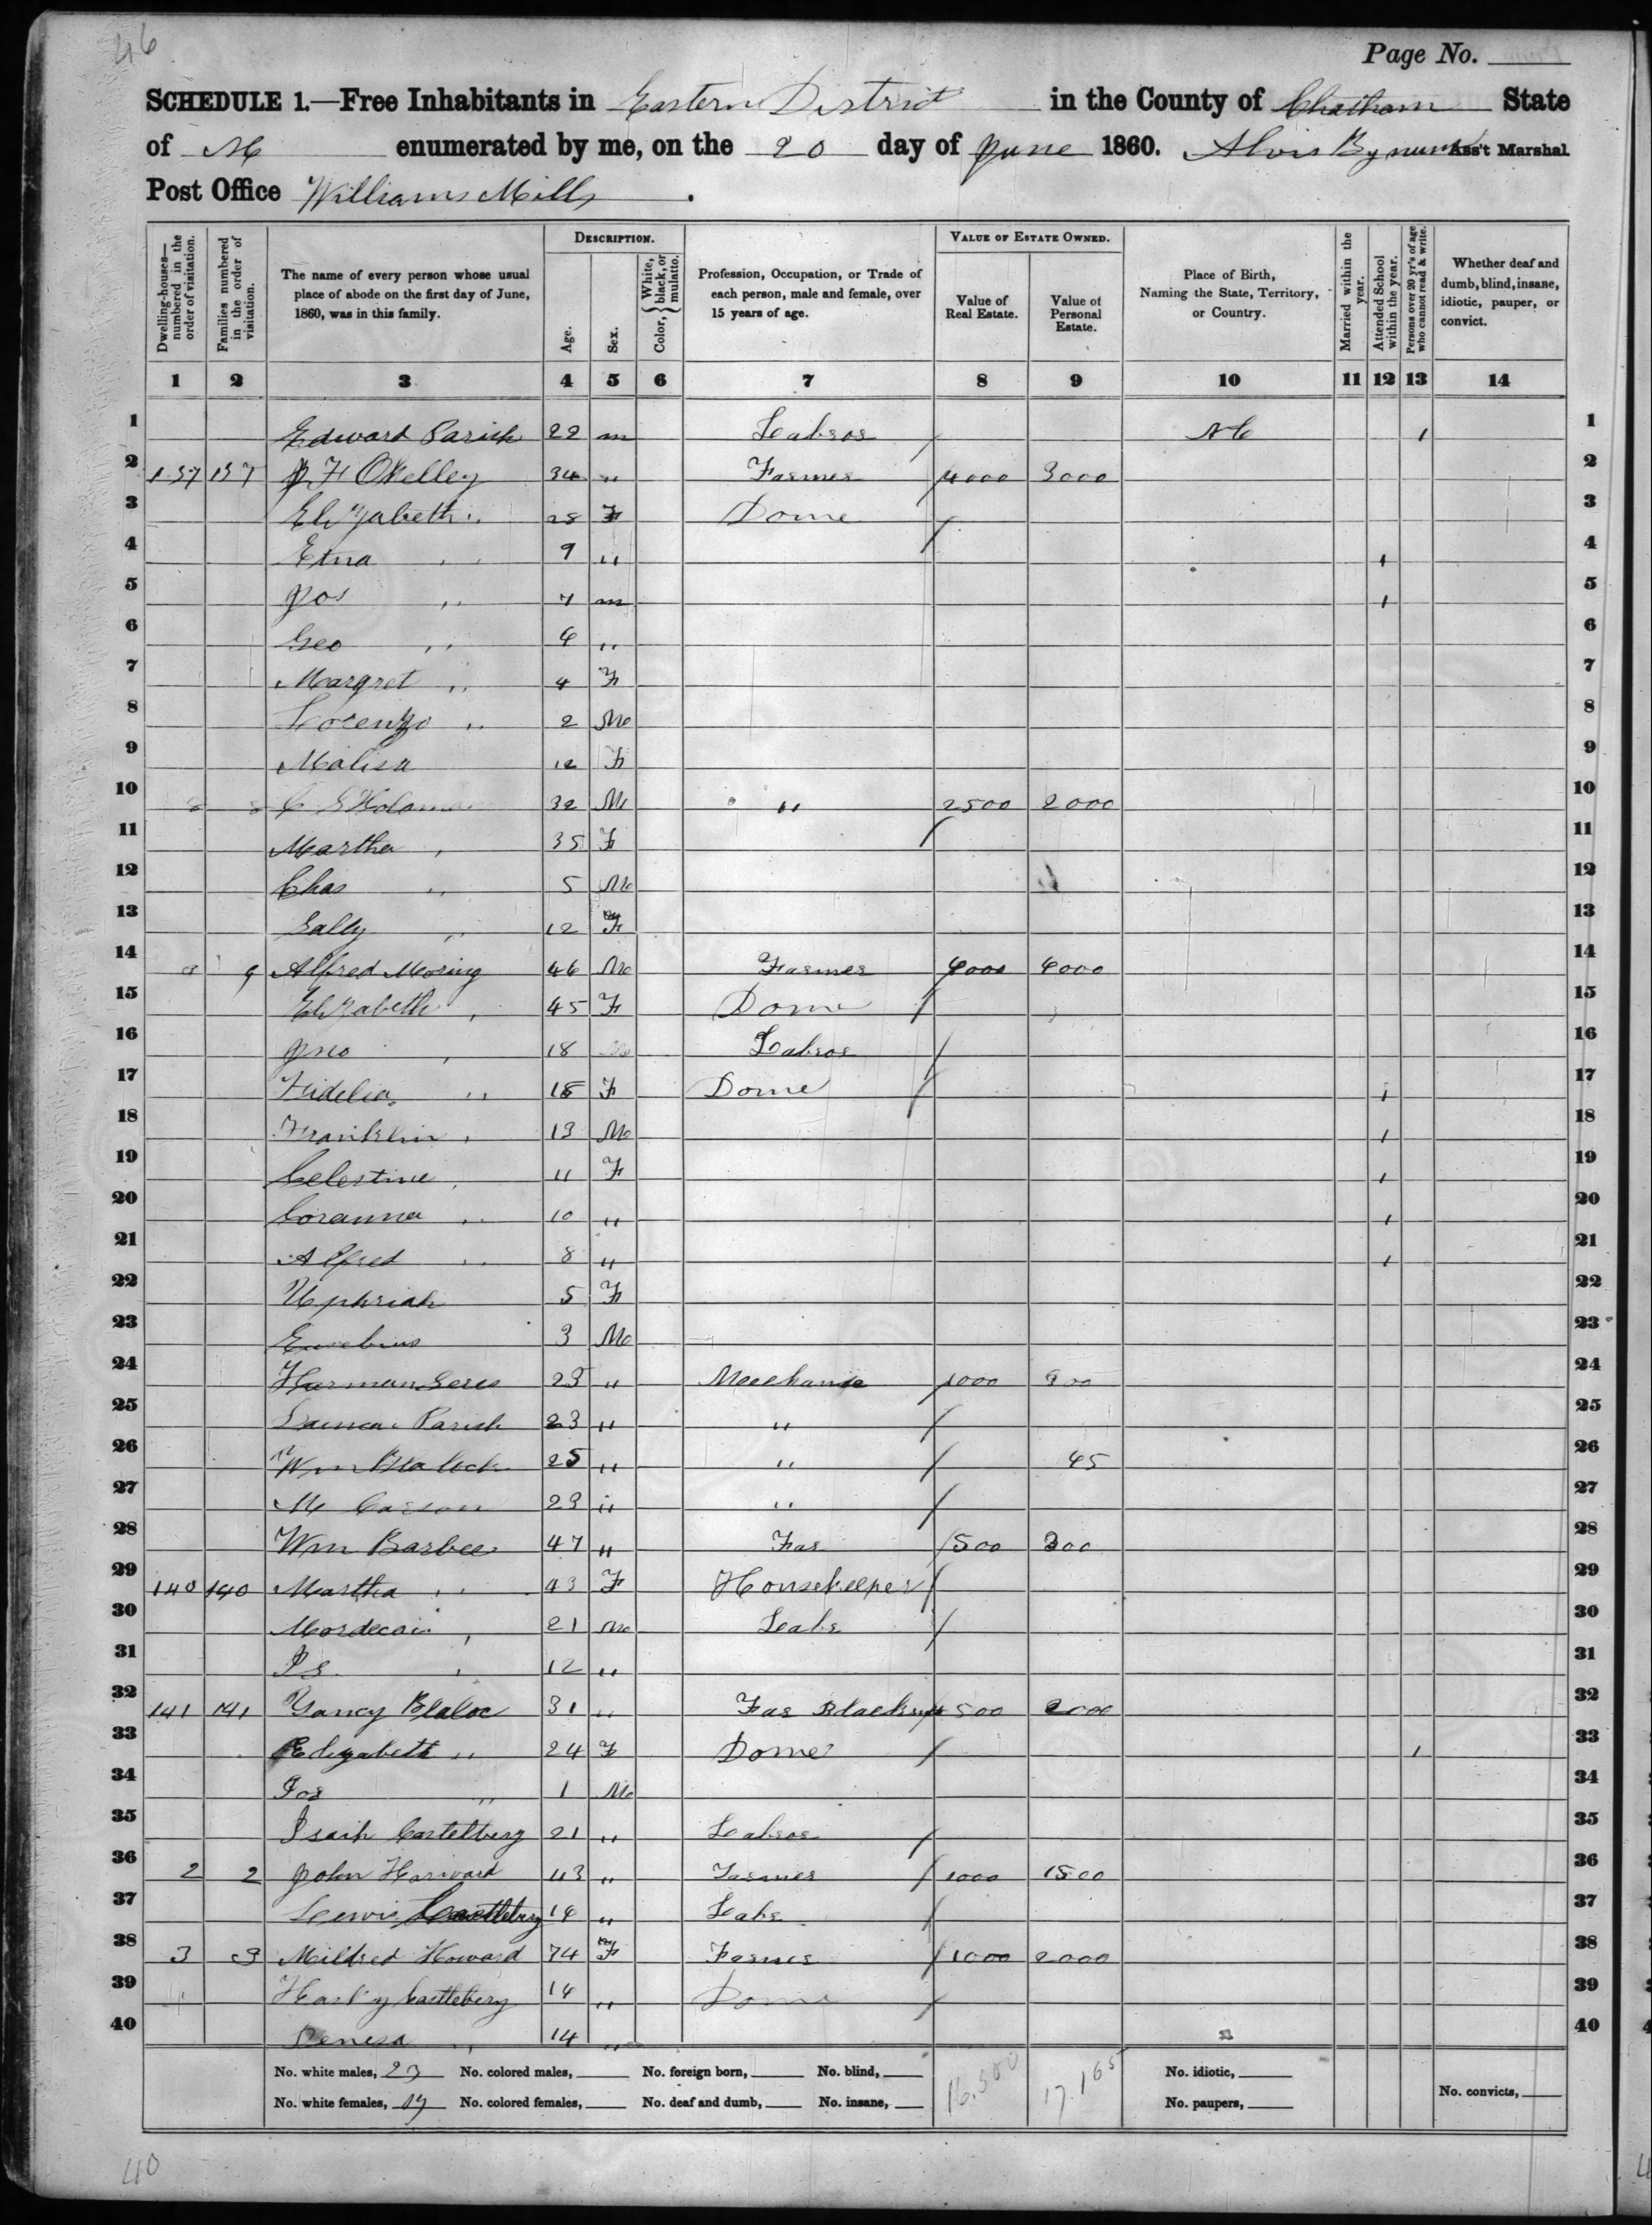 46
Page No.
SCHEDULE 1.—Free Inhabitants in Eastern District in the County of Chatham State
of NC enumerated by me, on the 20 day of June 1860. Alvis Bynum Ass't Marshal
Post Office Williams Mills.
Dwelling-houses—numbered in the order of visitation.
Families numbered in the order of visitation.
The name of every person whose usual place of abode on the first day of June, 1860, was in this family.
DESCRIPTION.
Age.
Sex.
Color, { White, black, or mulatto.
Profession, Occupation, or Trade of each person, male and female, over 15 years of age.
VALUE OF ESTATE OWNED.
Value of Real Estate.
Value of Personal Estate.
Place of Birth, Naming the State, Territory, or Country.
Married within the year.
Attended School within the year.
Persons over 20 yr's of age who cannot read & write.
Whether deaf and dumb, blind, insane, idiotic, pauper, or convict.
1 2 3 4 5 6 7 8 9 10 11 12 13 14
1 Edward Parish 22 m Labror / NC 1 1
2 137 137 J F OKelley 34 " Farmer 4000 3000 2
3 Elizabeth " 28 F Dome / 3
4 Etna " 9 " 1 4
5 Jos " 7 m 1 5
6 Geo " 6 " 6
7 Margret " 4 F 7
8 Lorenzo " 2 M 8
9 Malisa 12 F 9
10 8 8 32 M " 2500 2000 10
11 Martha " 35 F / 11
12 Chas " 5 M 12
13 Sally " 12 F 13
14 9 9 Alfred Moring 46 M Farmer 4000 4000 14
15 Elizabeth " 45 F Dome / 15
16 Jno " 18 M Labror / 16
17 Fidelia " 15 F Dome / 1 17
18 Franklin " 13 M 1 18
19 Celestine " 11 F 1 19
20 Coranna " 10 " 1 20
21 Alfred " 8 " 1 21
22 5 F 22
23 Eusebius 3 M 23
24 Harman 23 " Mechanic 1000 24
25 Parish 23 " " / 25
26 Wm Blalock 25 " " / 45 26
27 M Carson 23 " " / 27
28 Wm Barbee 47 " Far 500 300 28
29 140 140 Martha " 43 F Housekeeper / 29
30 Mordecai " 21 M Labr / 30
31 " 12 " 31
32 141 141 Yancy Blaloc 31 " Far Blacksmt 500 2000 32
33 Elizabeth " 24 F Dome / 1 33
34 Jos " 1 M 34
35 Isaih Castelberg 21 " Labror / 35
36 2 2 John Harward 43 " Farmer / 1000 1500 36
37 Lewis Castleberg 16 " Labr / 37
38 3 3 Mildred Howard 74 F Farmer / 1000 2000 38
39 Castleberg 14 " Dome / 39
40 " 14 " 40
No. white males, 23 No. colored males, No. foreign born, No. blind, 16.500 17.165 No. idiotic,
No. white females, 17 No. colored females, No. deaf and dumb, No. insane, No. paupers, No. convicts,
40